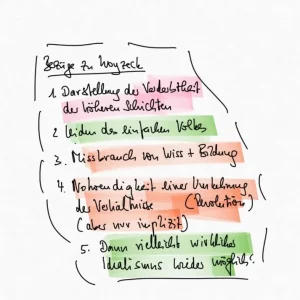 Bezüge zu Woyzeck
1. Darstellung der Verderbtheit
der höheren Schichten
2. Leiden des einfachen Volkes
3. Missbrauch von Wiss + Bildung
4. Notwendigkeit einer Umkehrung
der Verhältnisse (Revolution)
(aber nur implizit)
5. Dann vielleicht wirklicher
Idealismus wieder möglich.